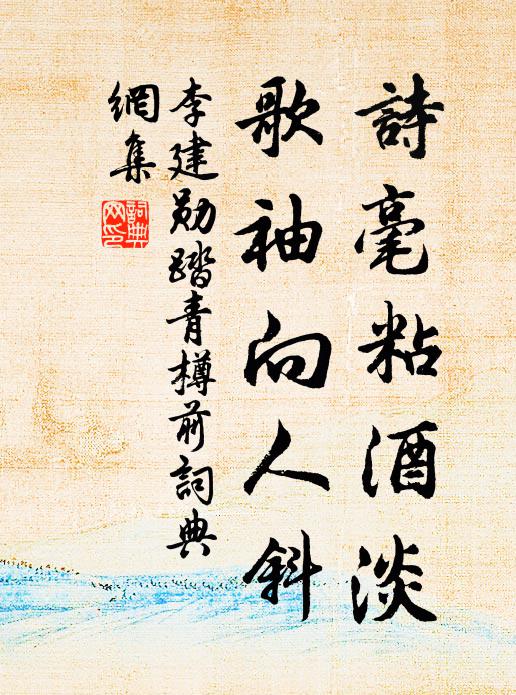 詩毫粘酒淡
歌袖向人斜
李建勋踏青樽前詞典
網集
詞典
网印